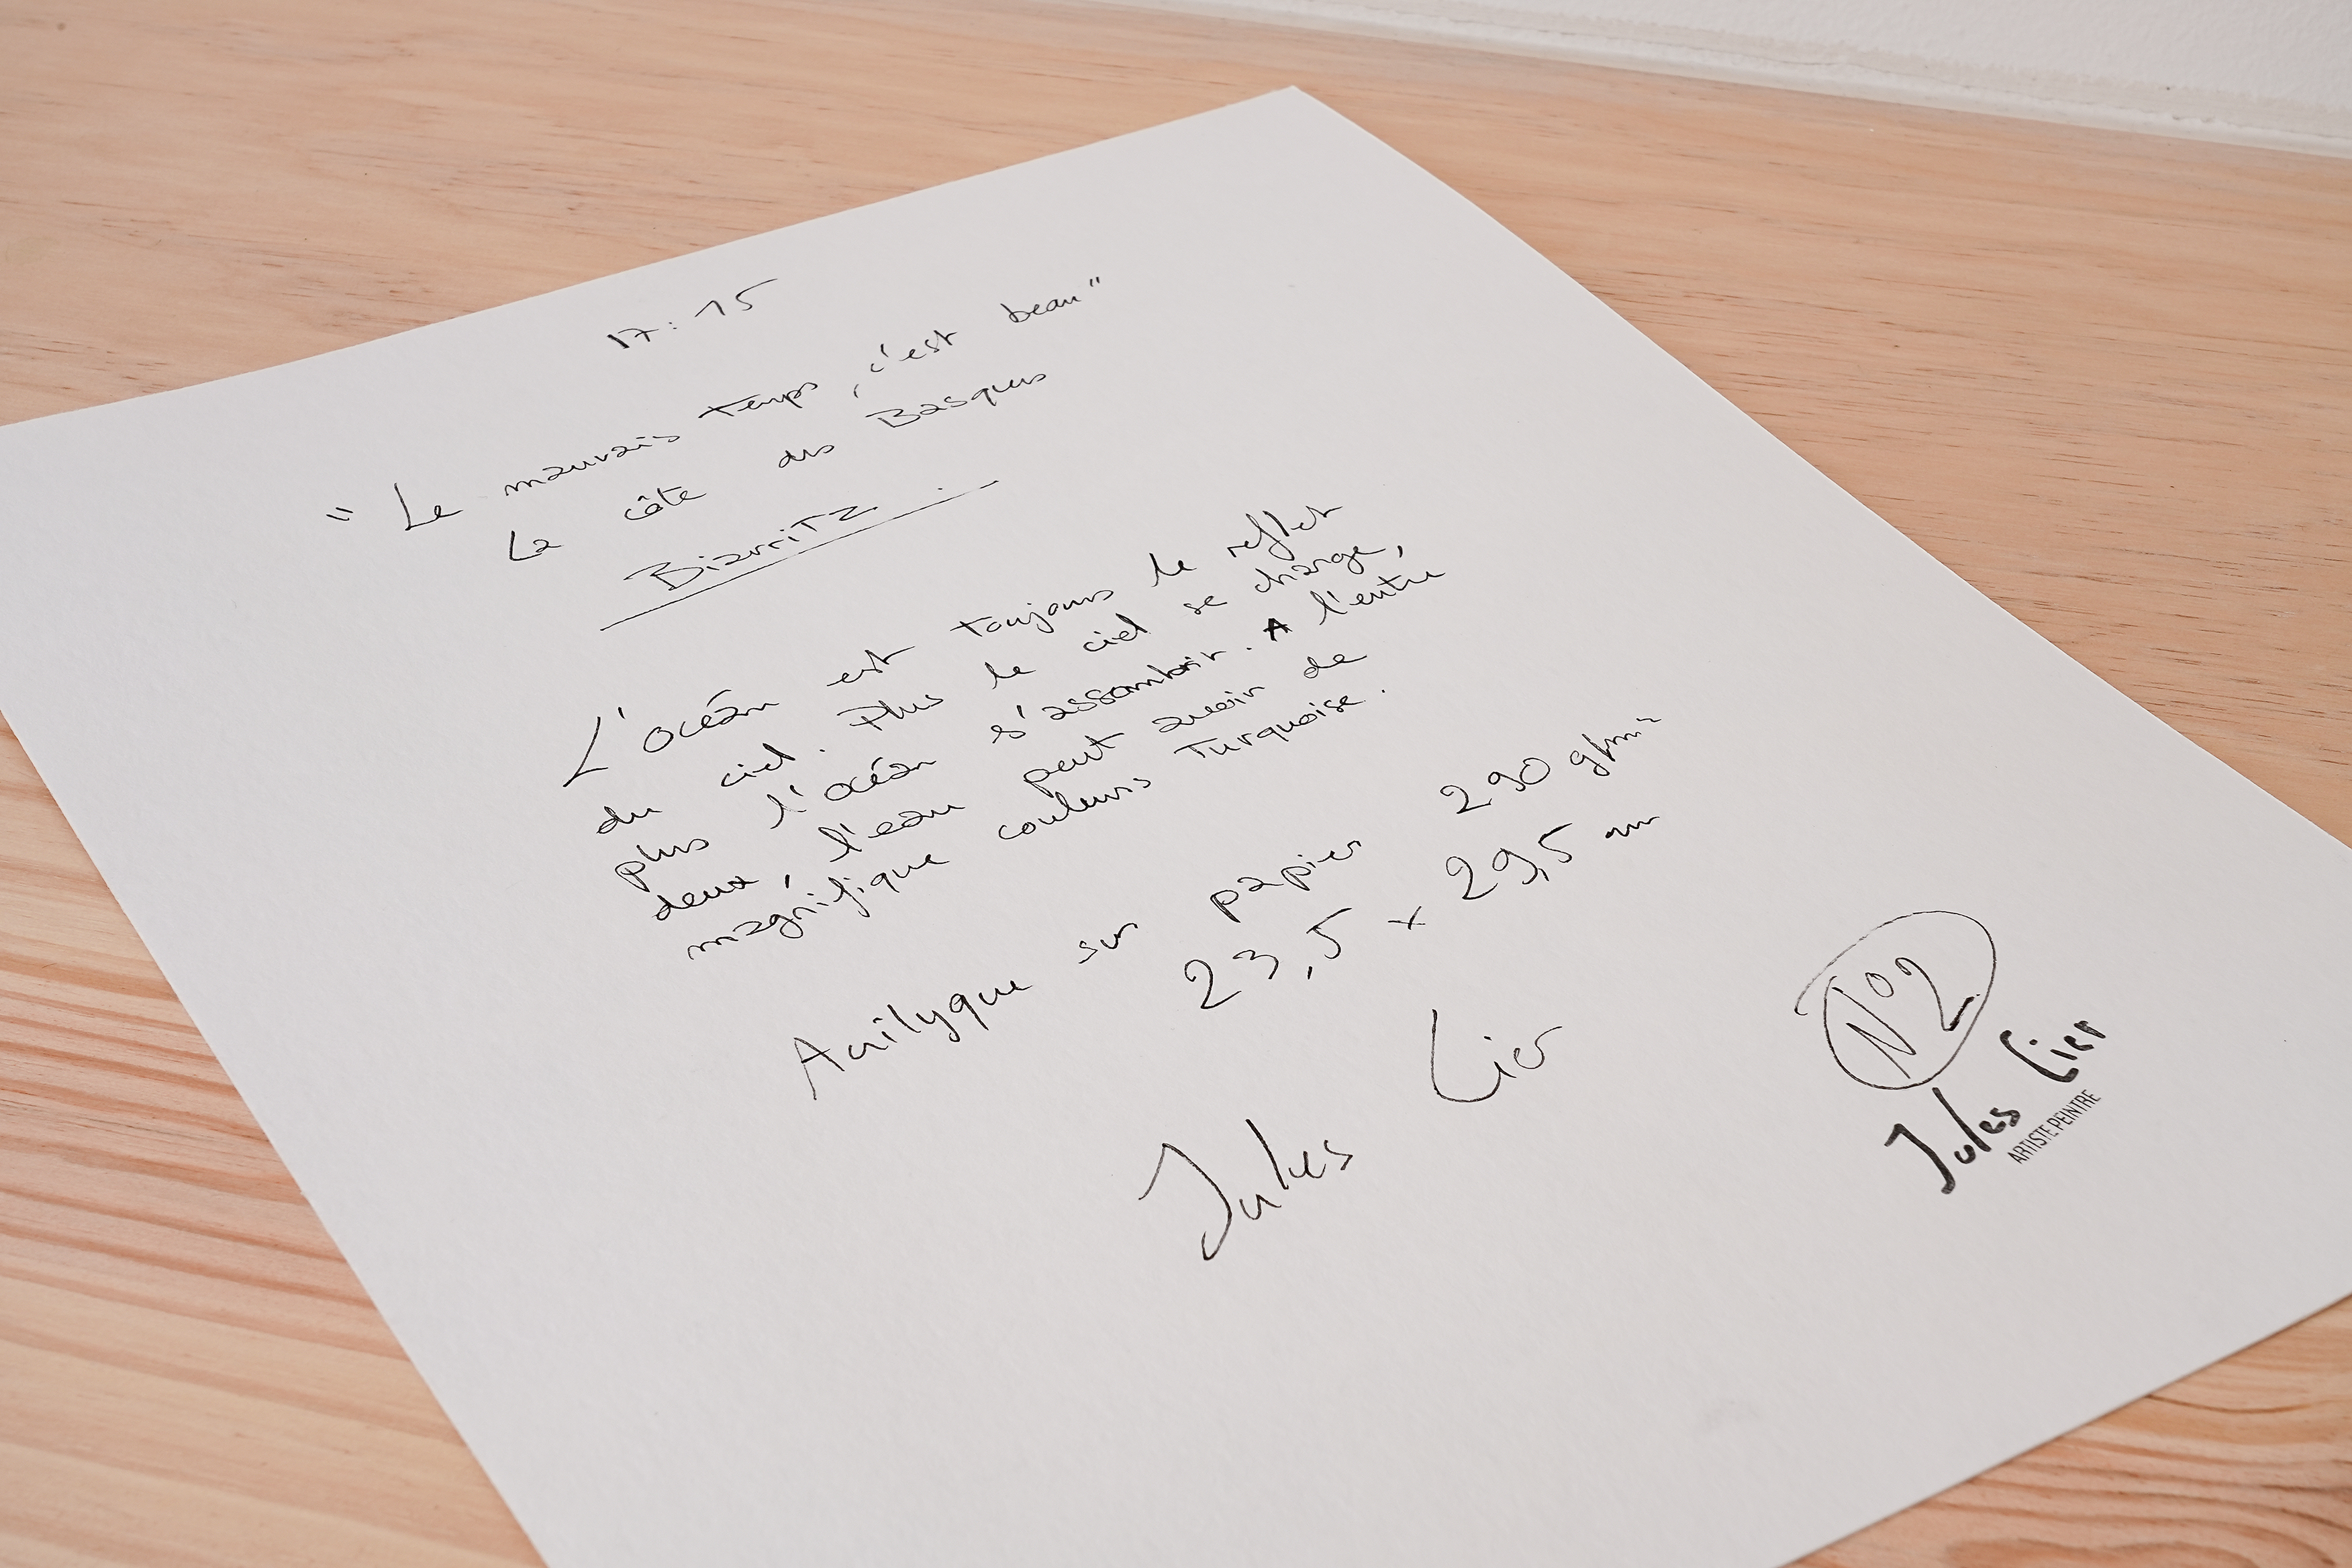 17:15
"Le mauvais temps, c'est beau"
La côte des Basques
Biarritz
L'océan est toujours le reflet
du ciel. Plus le ciel se charge,
plus l'océan s'assombrir. A l'entre
deux, l'eau peut avoir de
magnifique couleurs Turquoise.
Acrilyque sur papier 290 g/m²
23,5 x 29,5 cm
Jules Cier
N°2
Jules Cier
ARTISTE PEINTRE